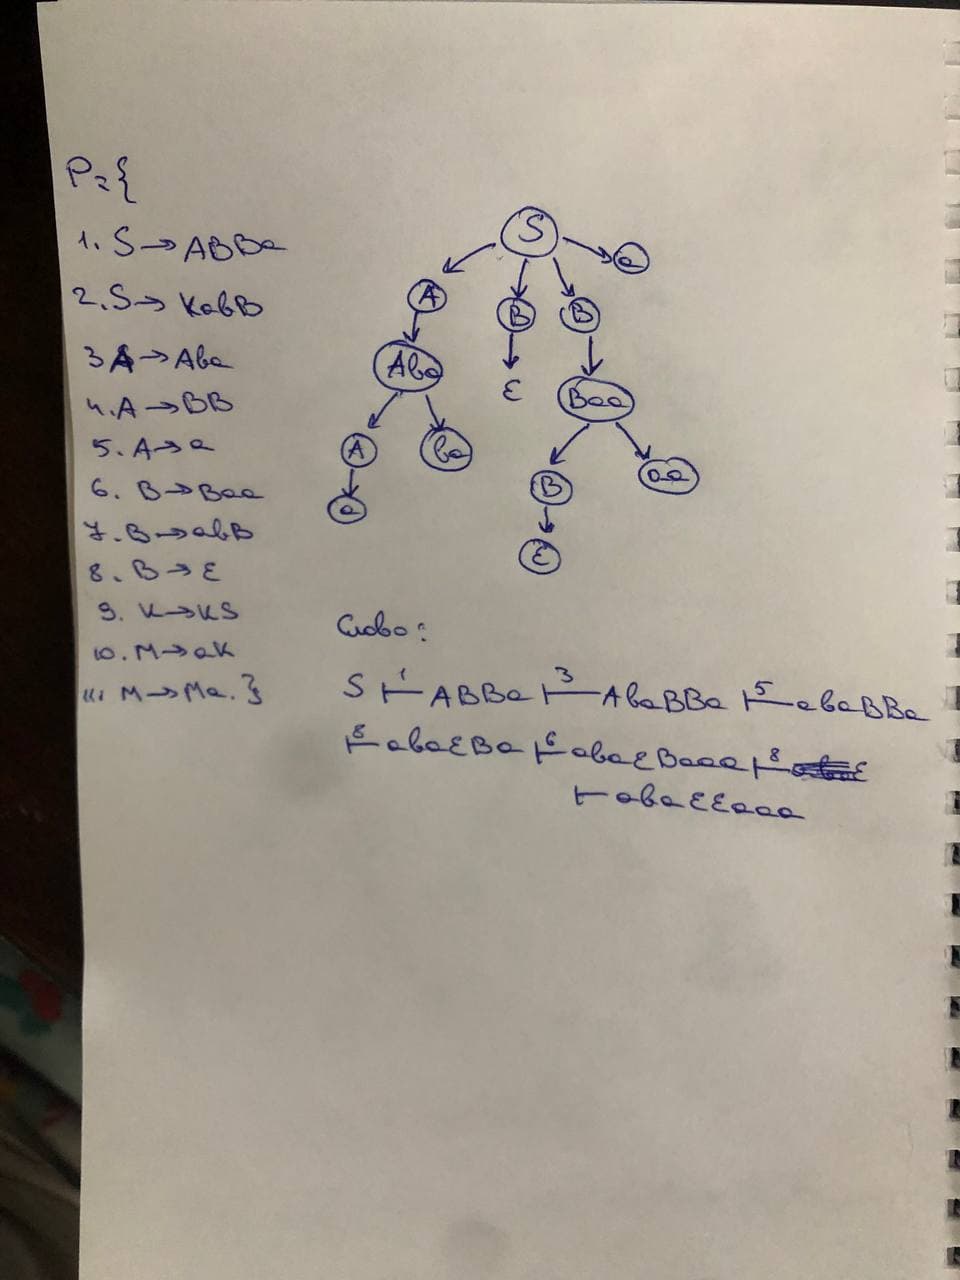 P={
1. S→ABBa
2. S→KabB
3 A→Aba
4. A→BB
5. A→a
6. B→Baa
7. B→abB
8. B→ε
9. K→KS
10. M→aK
11. M→Ma. }
S
a
A
B
B
Aba
ε
Baa
A
ba
B
aa
a
ε
Слово:
S ⊢1 ABBa ⊢3 AbaBBa ⊢5 abaBBa
⊢8 abaεBa ⊢6 abaεBaaa ⊢8 ε
⊢ abaεεaaa